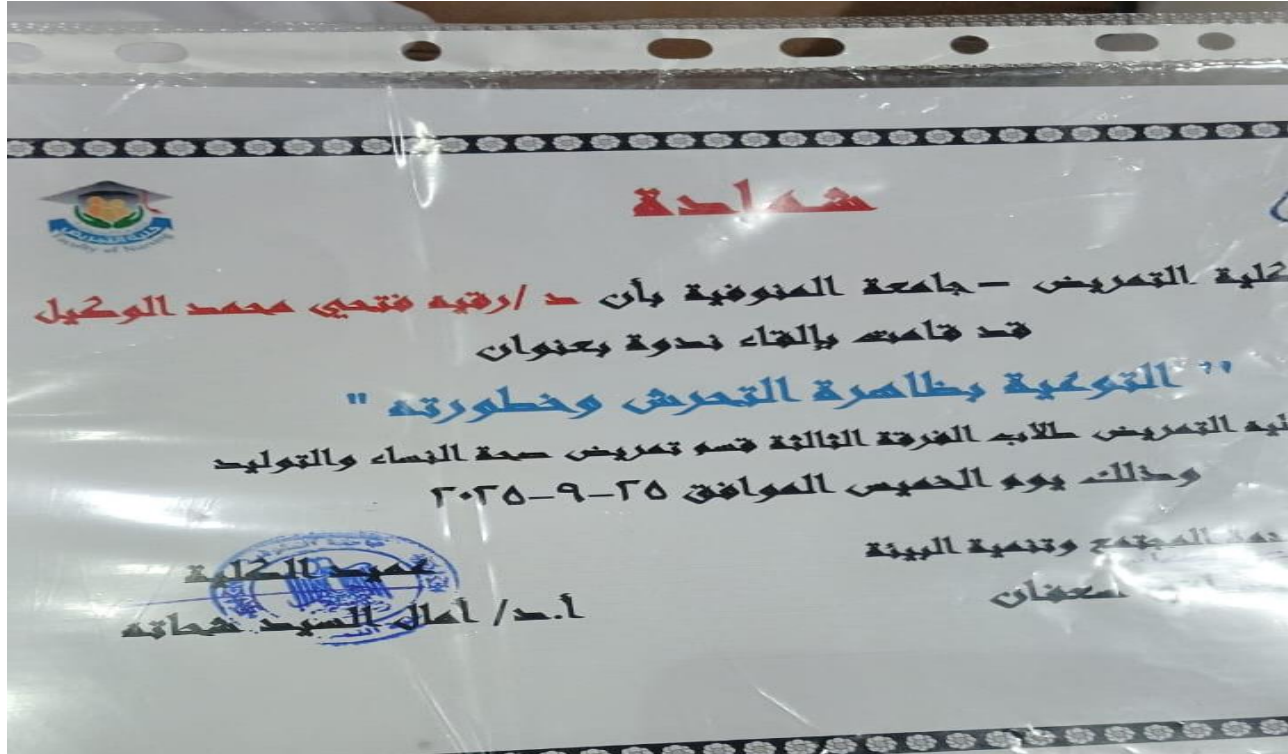 شهادة
كلية التمريض
Faculty of Nursing
كلية التمريض - جامعة المنوفية بأن د /رقيه فتحي محمد الوكيل
قد قامت بإلقاء ندوة بعنوان
" التوعية بظاهرة التحرش وخطورته "
التمريض طلاب الفرقة الثالثة قسم تمريض صحة النساء والتوليد
وذلك يوم الخميس الموافق ٢٥-٩-٢٠٢٥
المجتمع وتنمية البيئة
عميد الكلية
أ.د/ أمال السيد شحاته